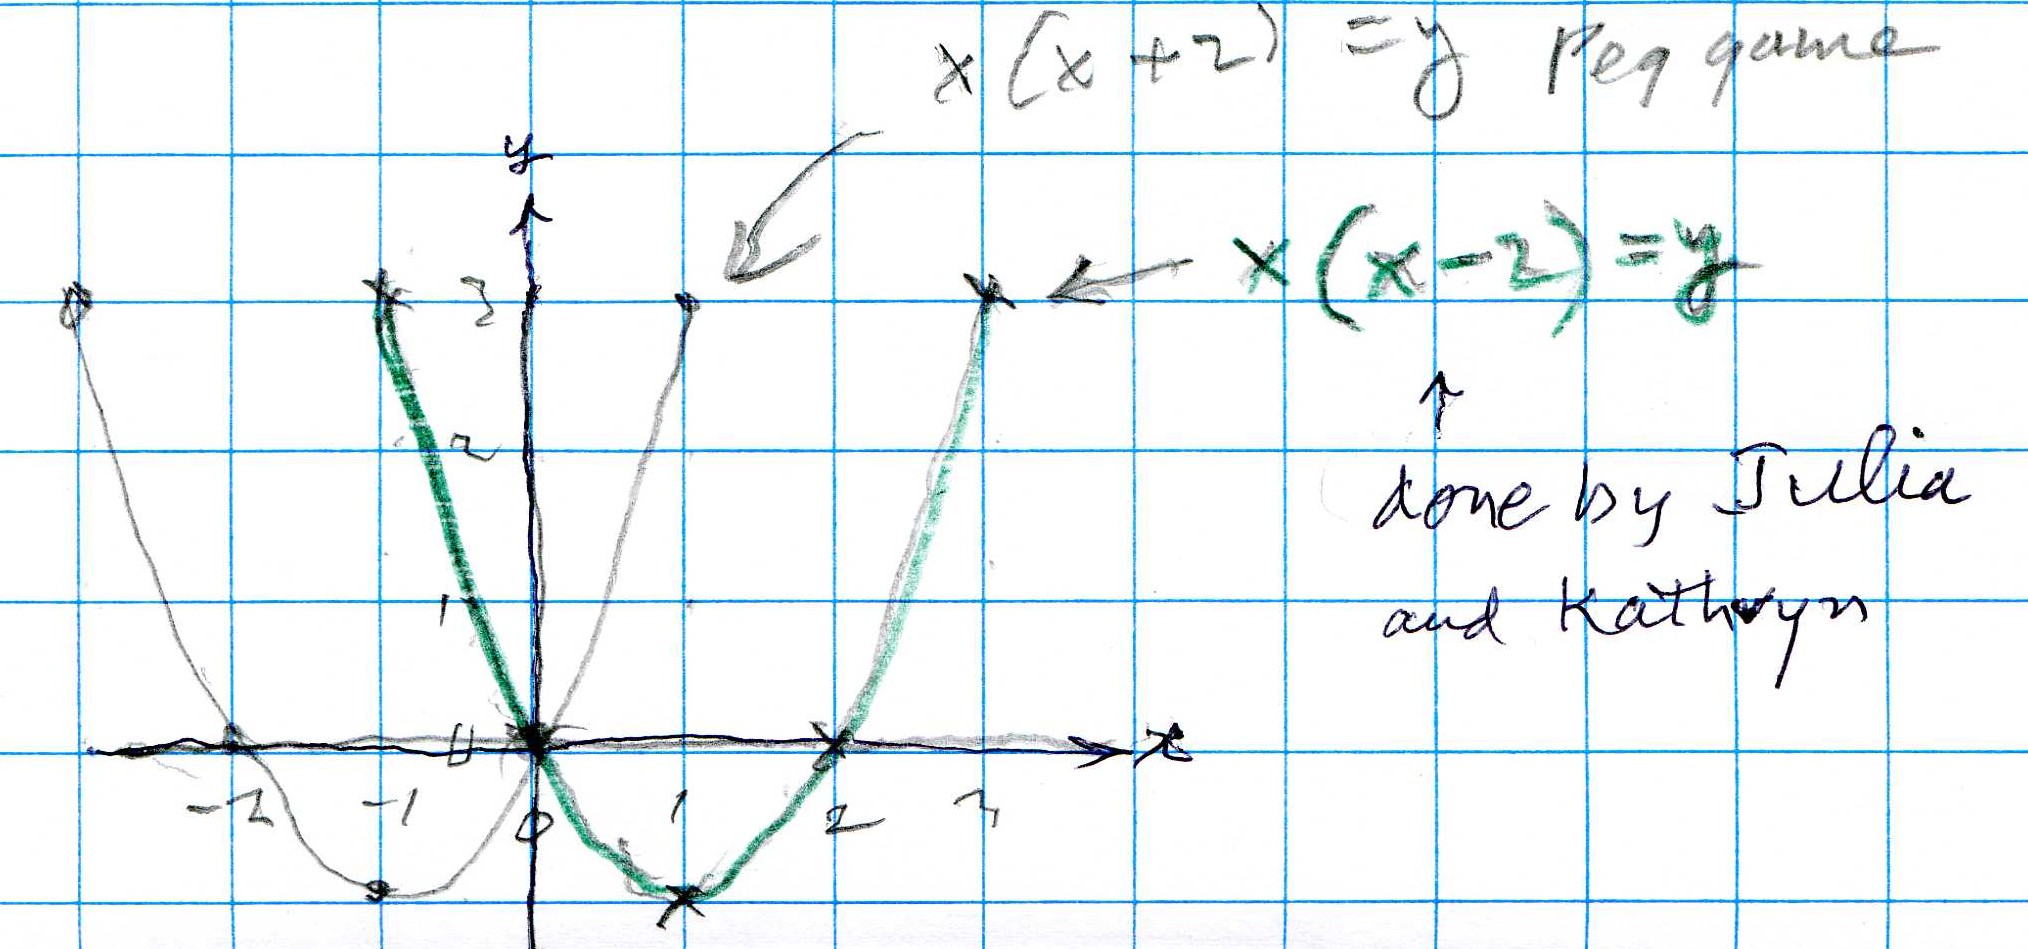 x(x+2) =y Peg game
y
x(x-2)=y
3
↑
2
done by Julia
1
and Kathryn
0
x
-2 -1 0 1 2 3